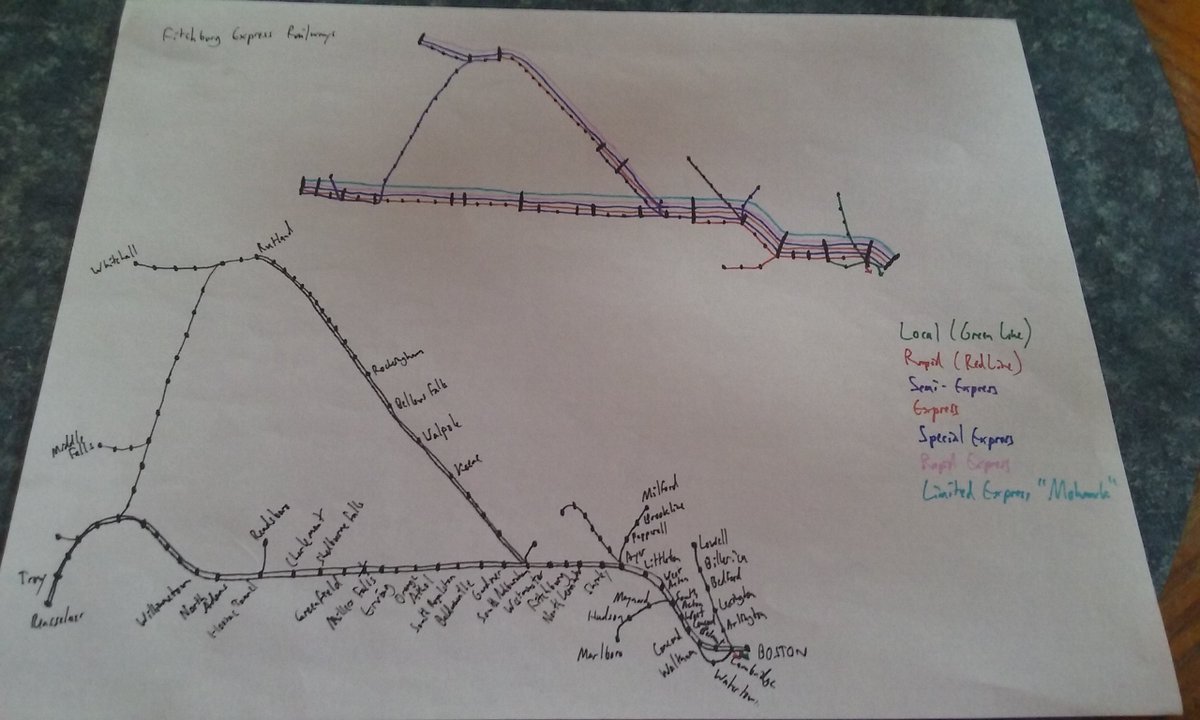 Fitchburg Express Railways
Local (Green Line)
Rapid (Red Line)
Semi-Express
Express
Special Express
Rapid Express
Limited Express "Mohawk"
Whitehall
Rutland
Middle
Falls
Rockingham
Bellows Falls
Walpole
Keene
Troy
Rensselaer
Williamstown
North
Adams
Hoosac Tunnel
Readsboro
Charlemont
Shelburne Falls
Greenfield
Millers Falls
Erving
Orange
Athol
South Royalston
Baldwinville
Gardner
South Ashburnham
Westminster
Fitchburg
North Leominster
Shirley
Ayer
Pepperell
Brookline
Milford
Littleton
West
Acton
South
Acton
West
Concord
Maynard
Hudson
Marlboro
Concord
Waltham
Lowell
Billerica
Bedford
Lexington
Arlington
BOSTON
Cambridge
Watertown